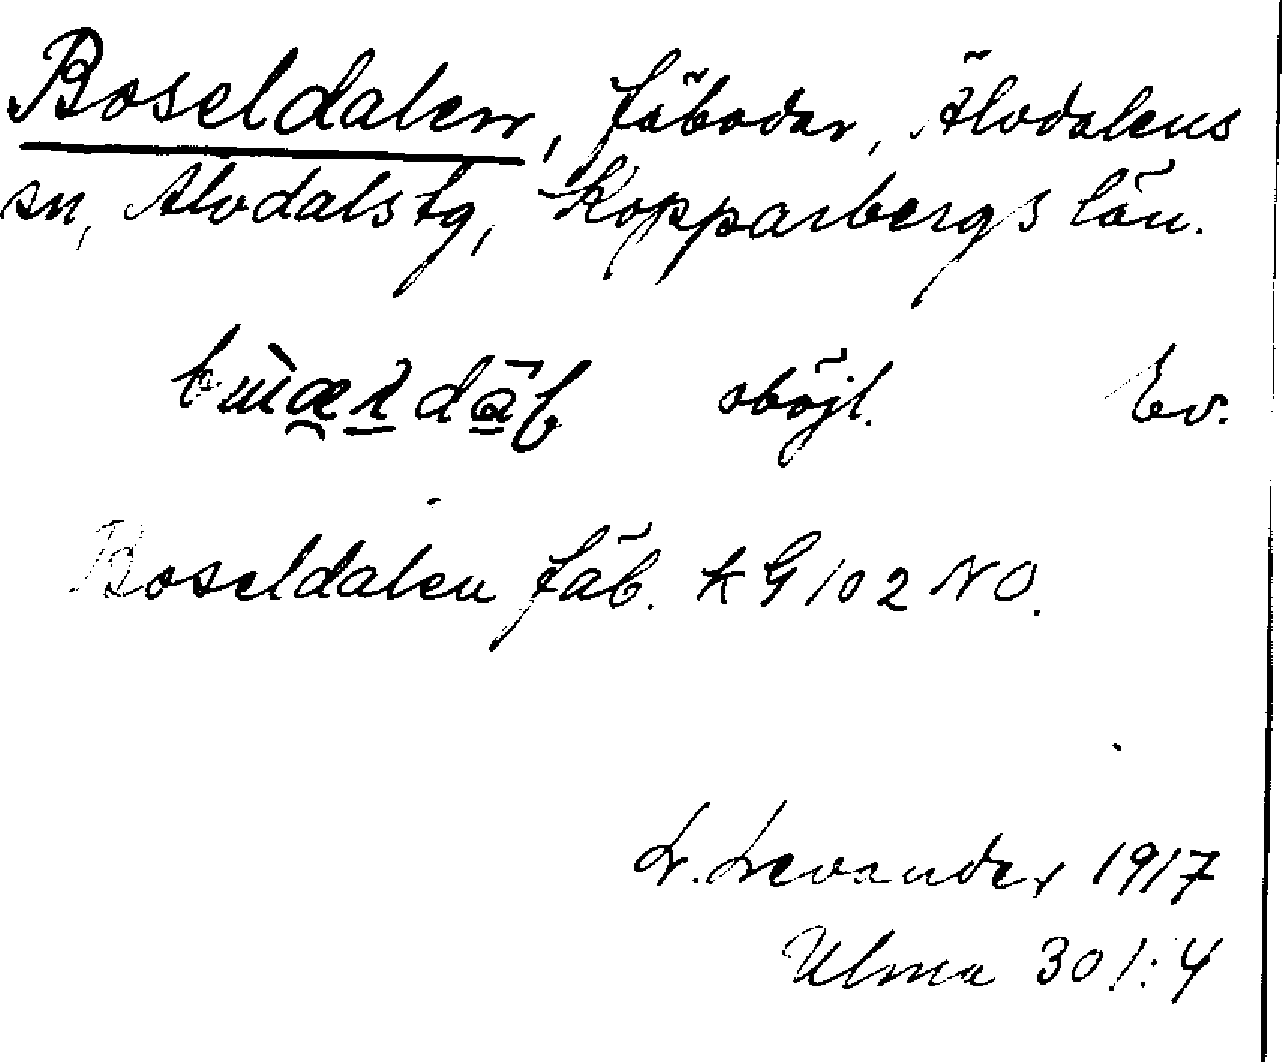 Boseldalen, fäbodar, Älvdalens
sn, Älvdals tg, Kopparbergs län.
oböjl. Ev.
Boseldalen fäb. kG 102 NO.
L. Levander 1917
Ulma 301:4